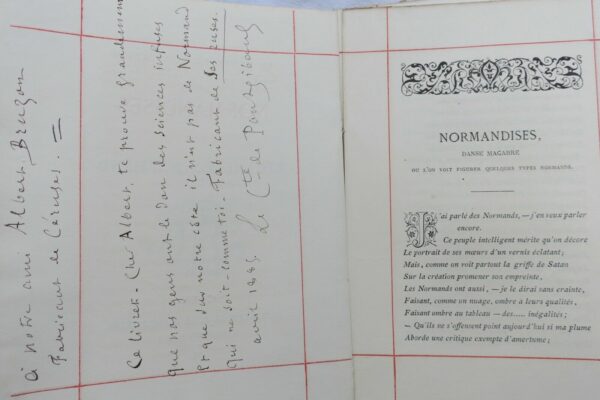 à notre ami Albert Bruzon
Fabricant de Céruses. =
Ce livret - Cher Albert, te prouve grandement
que nos gens ont le don des sciences infuses
Et que sur notre côte il n'est pas de Normand
Qui ne soit - comme toi - Fabricant de Ses ruses.
Le Cte de
avril 1885
NORMANDISES,
DANSE MACABRE
OU L'ON VOIT FIGURER QUELQUES TYPES NORMANDS.
J'ai parlé des Normands, — j'en veux parler
encore.
Ce peuple intelligent mérite qu'on décore
Le portrait de ses mœurs d'un vernis éclatant;
Mais, comme on voit partout la griffe de Satan
Sur la création promener son empreinte,
Les Normands ont aussi, — je le dirai sans crainte,
Faisant, comme un nuage, ombre à leurs qualités,
Faisant ombre au tableau — des..... inégalités;
— Qu'ils ne s'offensent point aujourd'hui si ma plume
Aborde une critique exempte d'amertume;